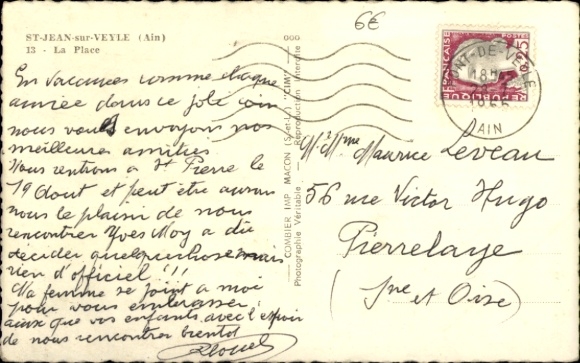 ST-JEAN-sur-VEYLE (Ain)
13 - La Place
En vacances comme chaque
année dans ce joli coin
nous vous envoyons nos
meilleures amitiés
Nous rentrons a St Pierre le
19 Aout et peut être aurons
nous le plaisir de nous
rencontrer Yves Moy a dû
décider quelquechose mais
rien d'officiel !!!
Ma femme se joint a moi
pour vous embrasser
ainsi que vos enfants avec l'espoir
de nous rencontrer bientot
COMBIER IMP. MACON (S.-et-L.) "CIM"
Photographie Véritable - Reproduction Interdite
6€
REPUBLIQUE FRANCAISE
POSTES
0,25
PONT-DE-VEYLE
18H
AIN
M. Mme Maurice Leveau
56 rue Victor Hugo
Pierrelaye
(Sne et Oise)